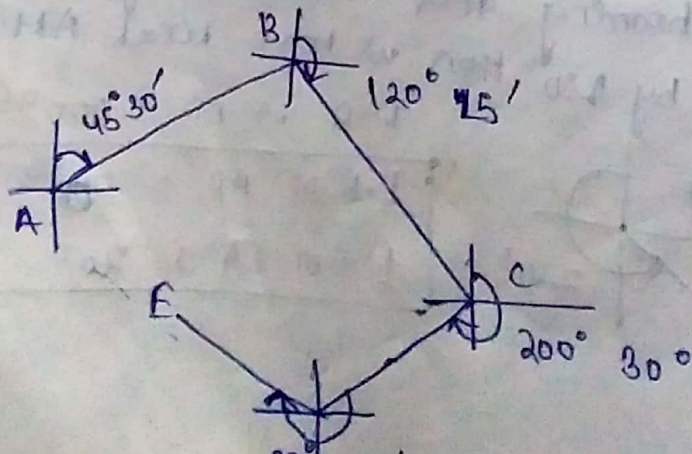 B
45°30'
120° 15'
A
E
C
200° 30°